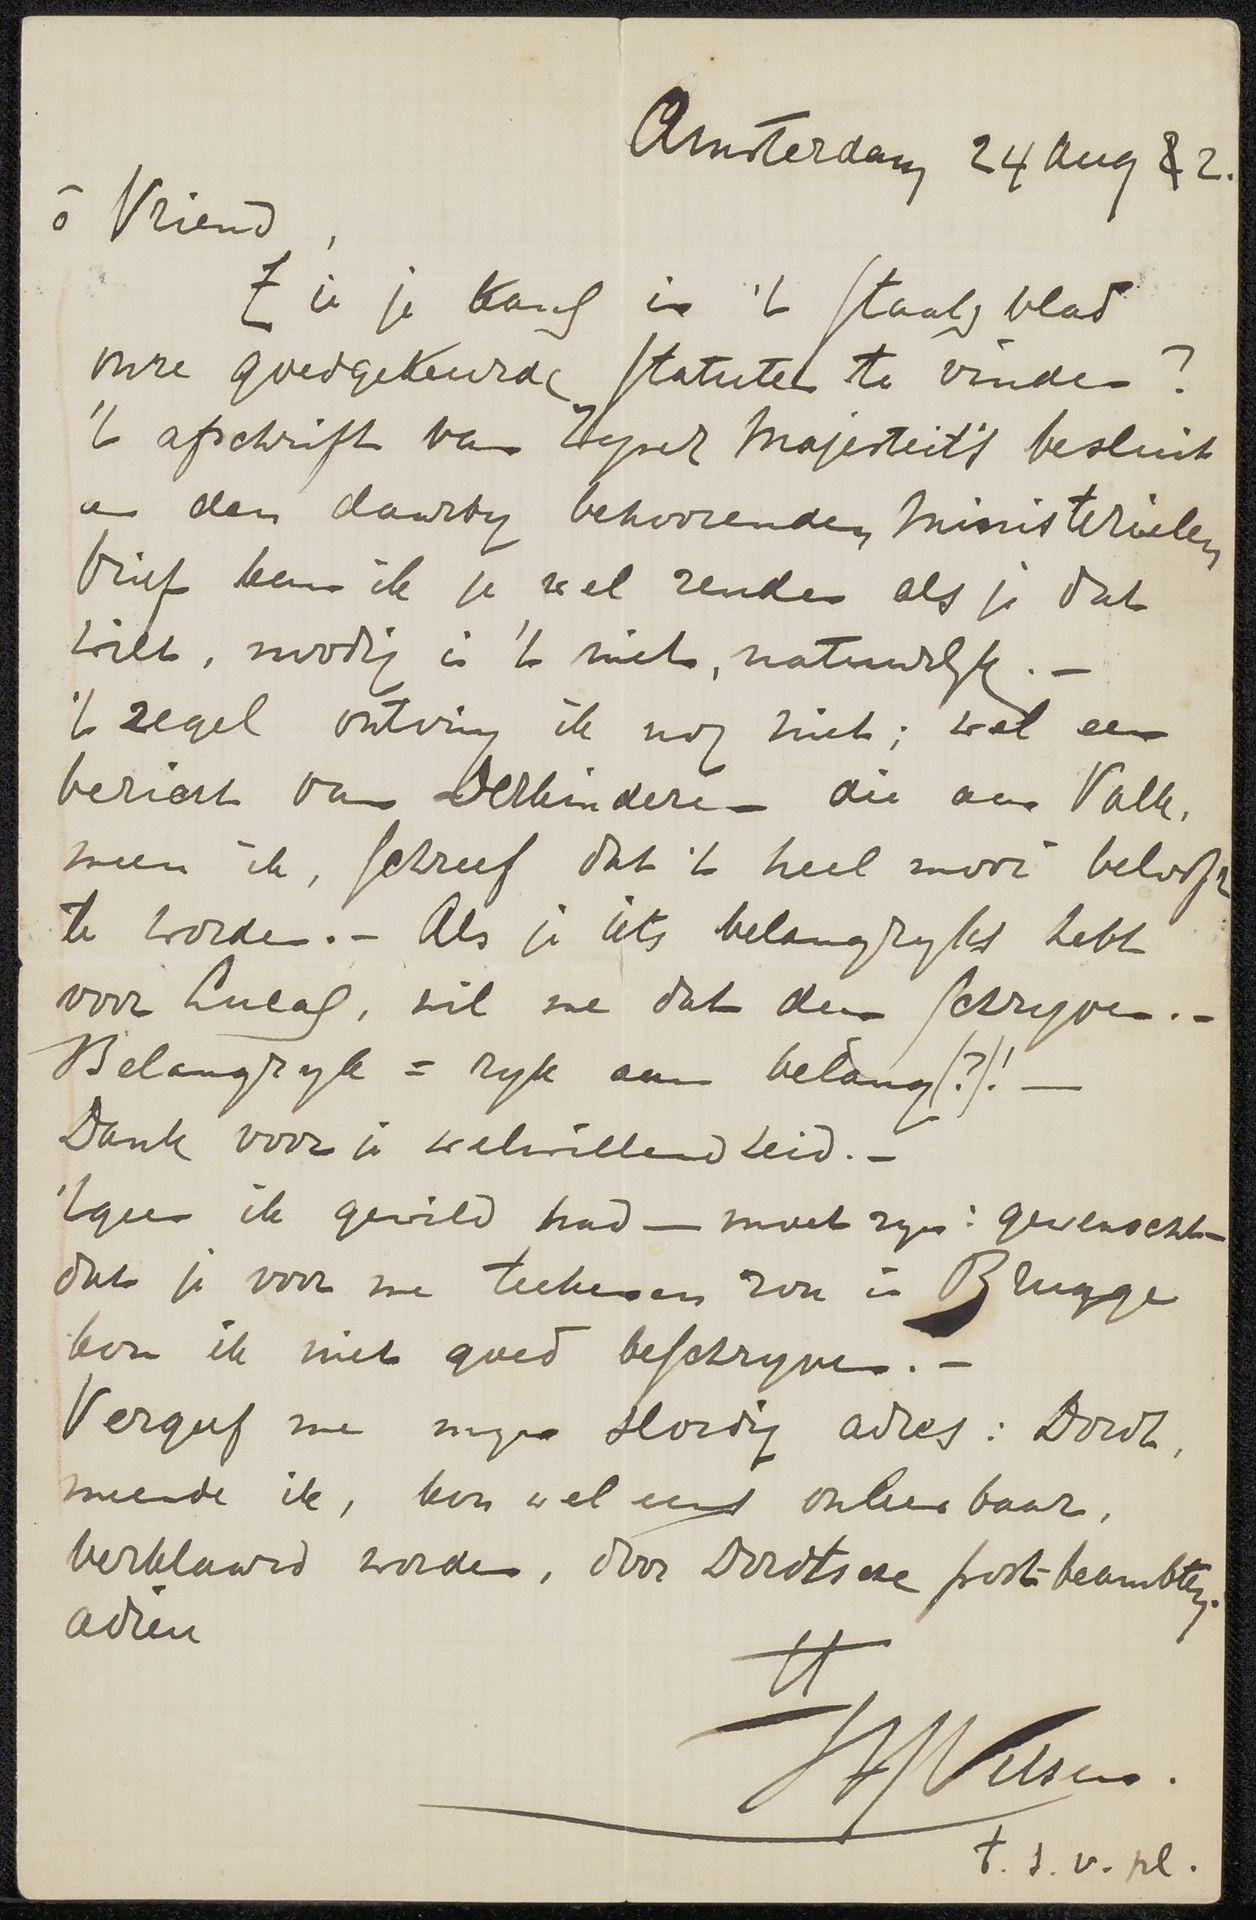 Amsterdam 24 Aug 82.
ō Vriend,
Zie je kans in 't Staatsblad
onze goedgekeurde Statuten te vinden?
't afschrift van Zyner Majesteit's besluit
en den daarby behoorenden Ministerielen
brief kan ik je wel zenden als je dat
wilt, noodig is 't niet, natuurlyk. —
't zegel ontving ik nog niet; wel een
bericht van Derkinderen die aan Valk,
meen ik, schreef dat 't heel mooi beloofde
te worden. — Als je iets belangryks hebt
voor Lucas, wil me dat dan schryven. —
Belangryk = ryk aan belang (?)! —
Dank voor je welwillendheid. —
'tgeen ik gewild had — moet zyn: gewenscht —
dat je voor me teekenen zou in Brugge
kon ik niet goed beschryven. —
Vergeef me myn slordig adres: Dordt,
meende ik, kon wel eens onleesbaar,
verklaard worden, door Dordtsche post-beambten.
adieu
tt
Velsen.
t. s. v. pl.